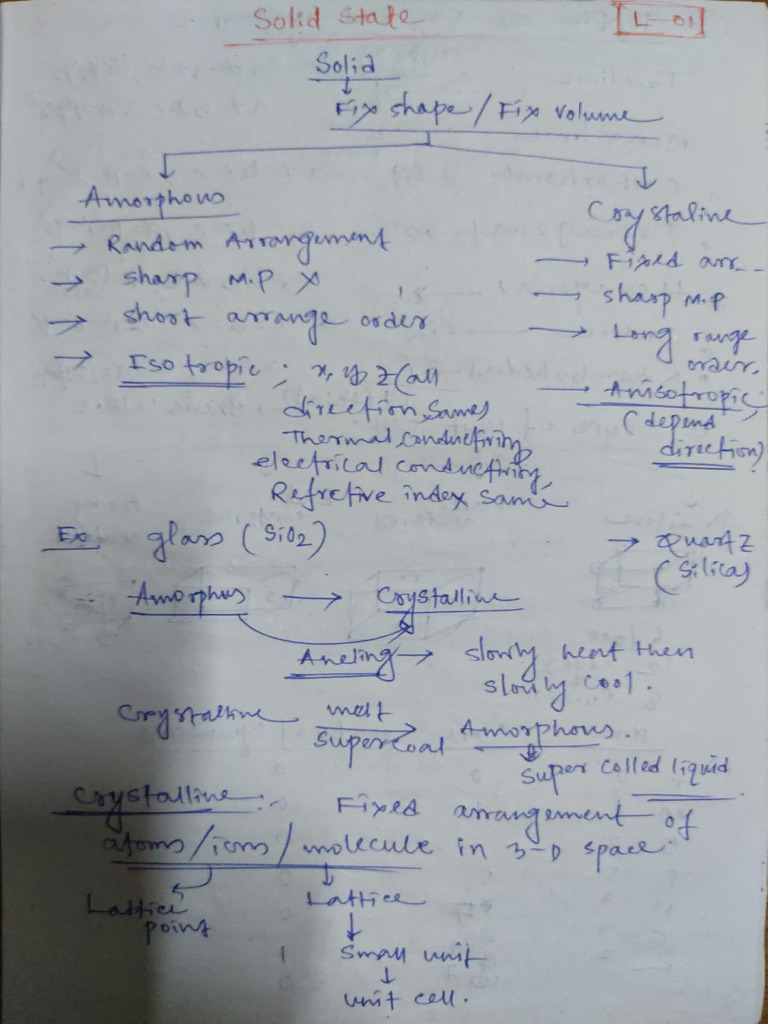 Solid State
L-01
Solid
Fix shape / Fix volume
Amorphous
→ Random Arrangement
→ sharp M.P X
→ short arrange order
→ Isotropic ; x, y, z (all
direction, same)
Thermal conductivity,
electrical conductivity,
Refretive index same
Crystaline
→ Fixed arr..
→ sharp M.P
→ Long range
order.
→ Anisotropic,
(depend
direction)
Ex glass (SiO2)
→ Quartz
(Silica)
Amorphus → Crystalline
Aneling → slowly heat then
slowly cool.
Crystalline melt Amorphous.
Supercoal
Super colled liquid
Crystalline :- Fixed arrangement of
atoms/ions/molecule in 3-D space
Lattice
point
Lattice
Small unit
unit cell.